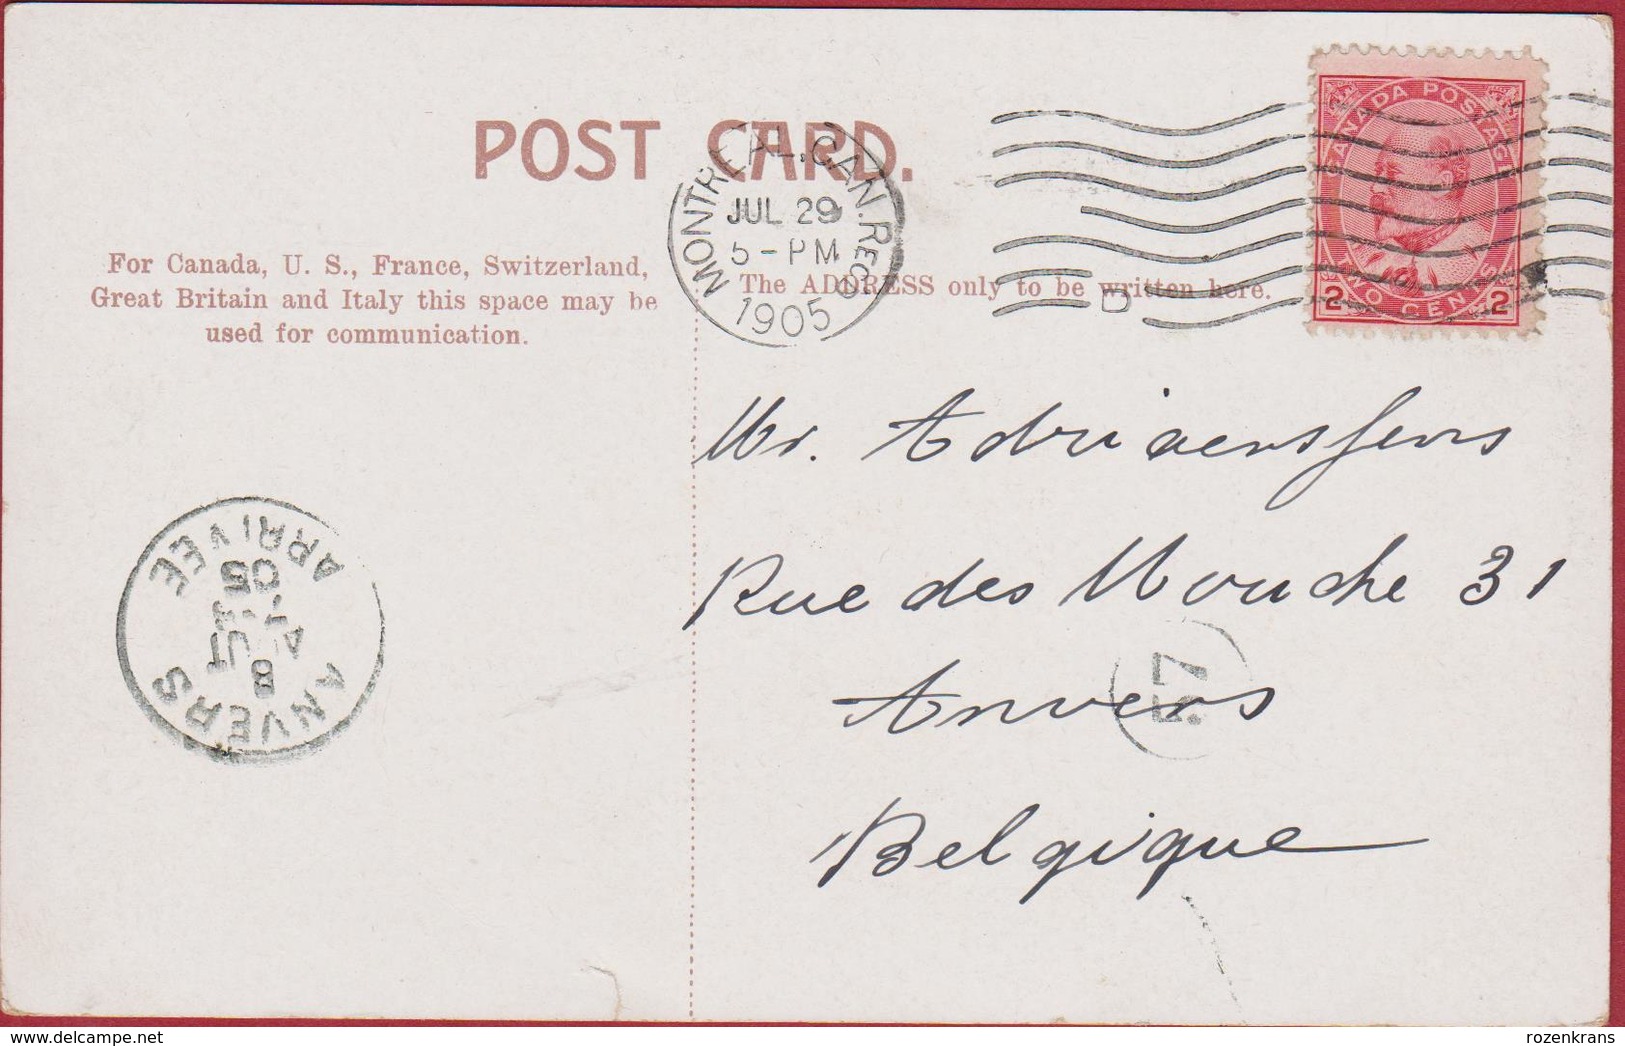 POST CARD.
MONTREAL.CAN. REC'D
JUL 29
5 - PM
1905
D
CANADA POSTAGE
2 TWO CENTS 2
For Canada, U. S., France, Switzerland,
Great Britain and Italy this space may be
used for communication.
The ADDRESS only to be written here.
Mr. Adriaenssens
Rue des Mouche 31
Anvers
Belgique
57
ANVERS
8
AOUT
05
ARRIVÉE
delcampe.net
rozenkrans